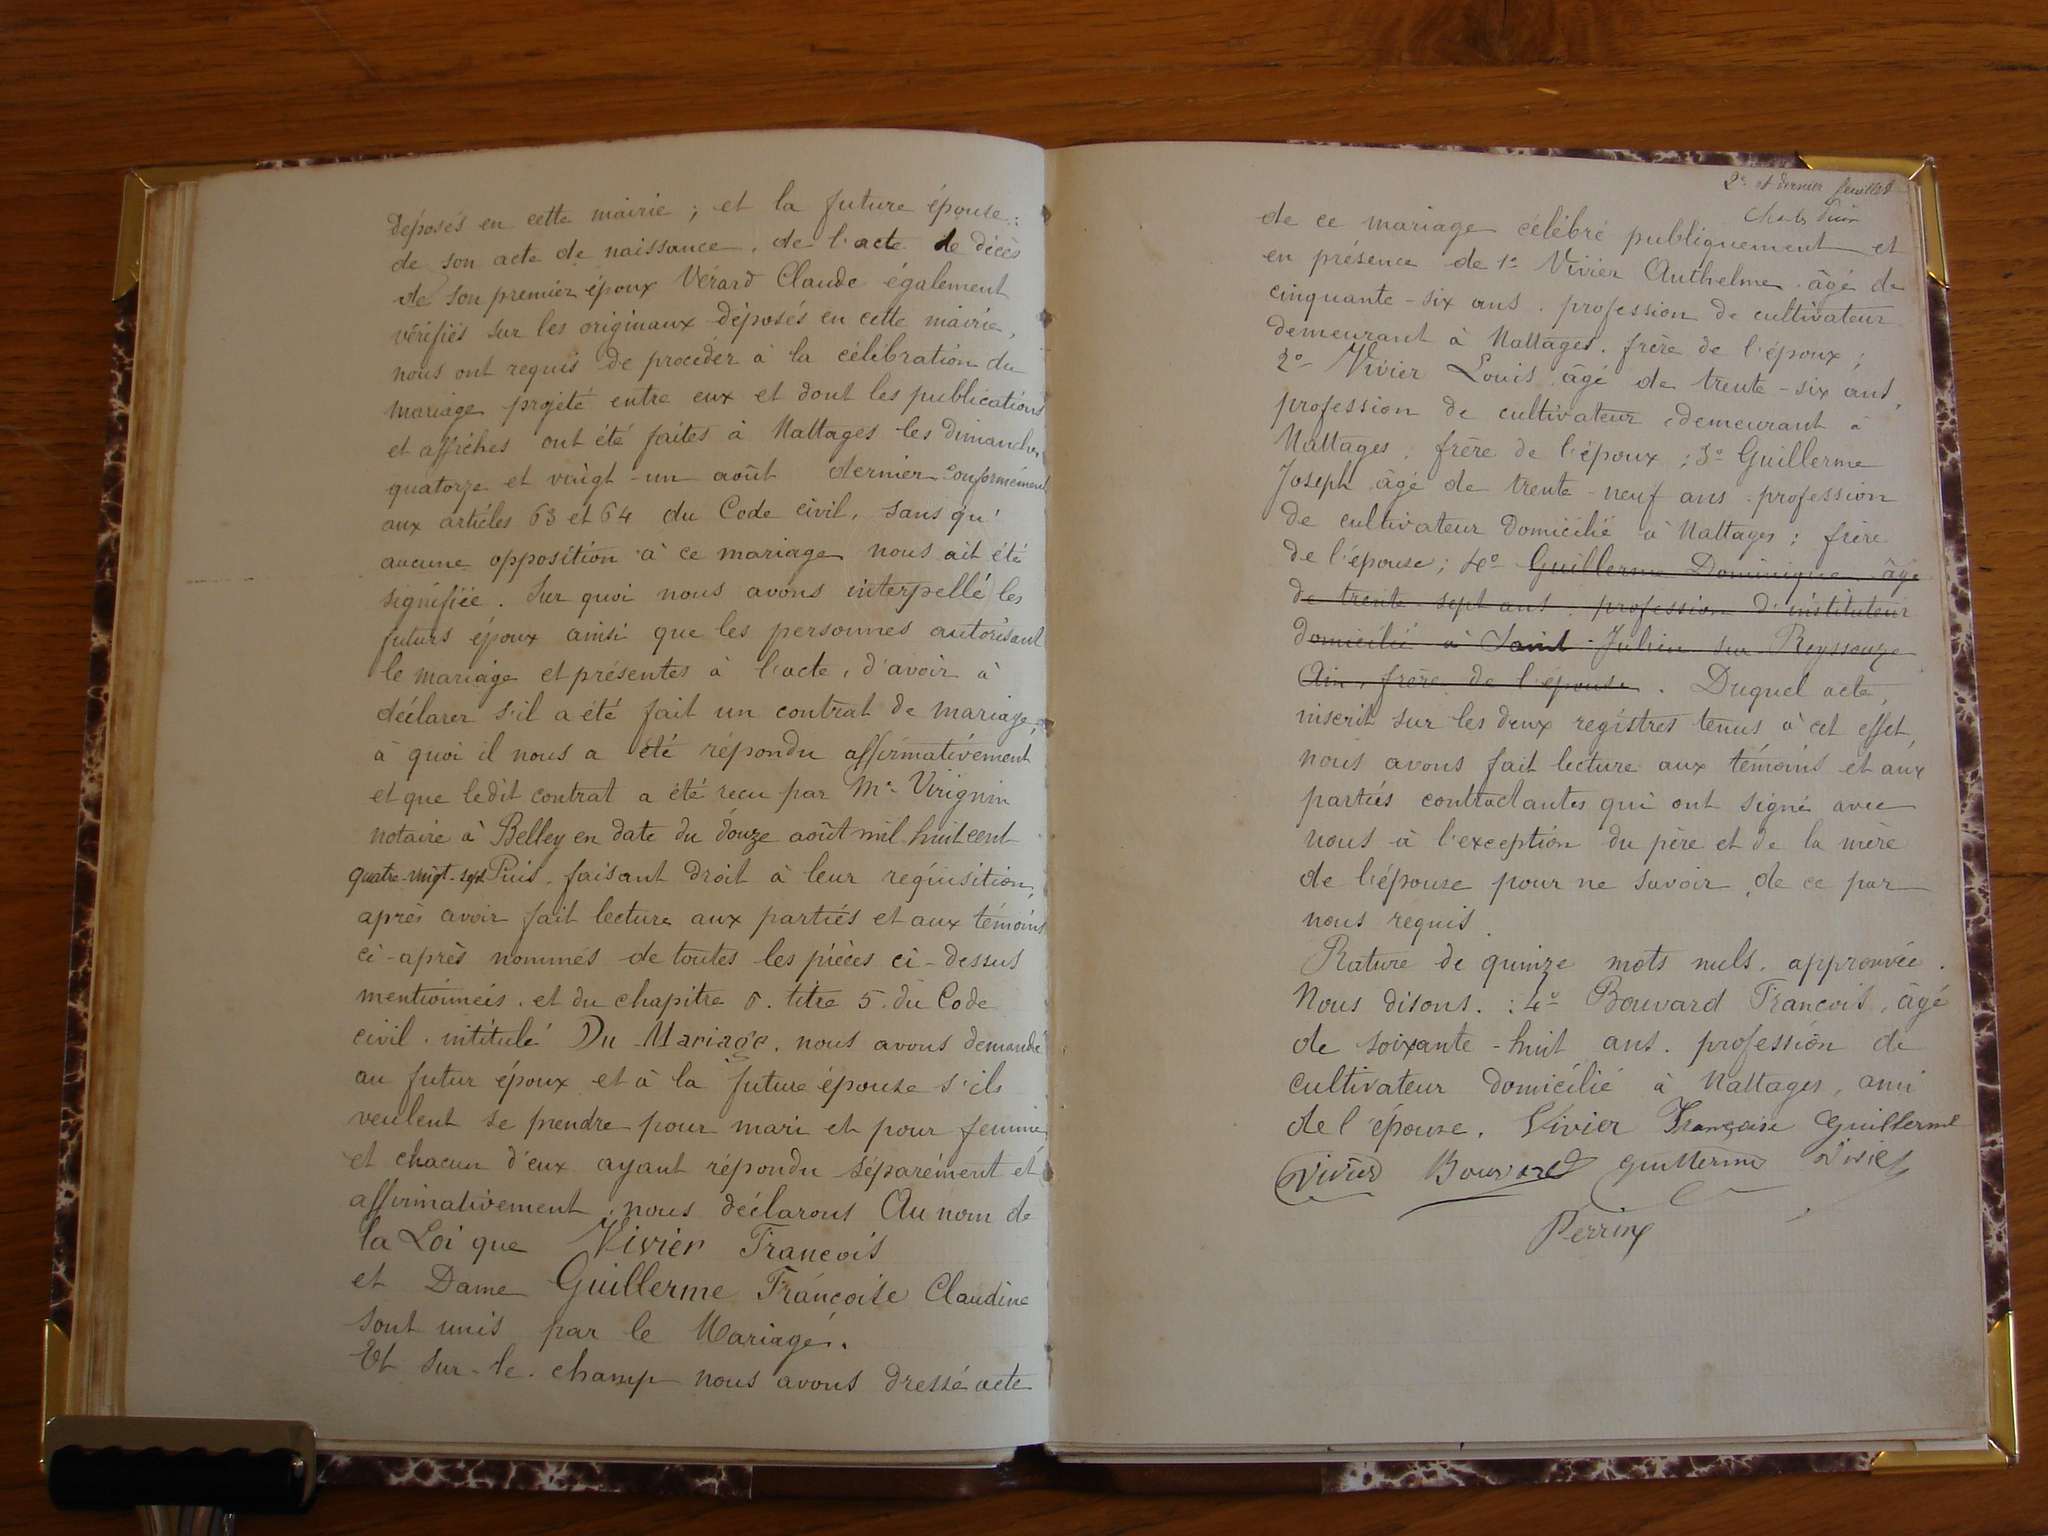 déposés en cette mairie ; et la future épouse :
de son acte de naissance, de l'acte de décès
de son premier époux Vérard Claude également
vérifiés sur les originaux déposés en cette mairie,
nous ont requis de procéder à la célébration du
mariage projeté entre eux et dont les publications
et affiches ont été faites à Nattages les dimanches
quatorze et vingt-un août dernier conformément
aux articles 63 et 64 du Code civil, sans qu'
aucune opposition à ce mariage nous ait été
signifiée. Sur quoi nous avons interpellé les
futurs époux ainsi que les personnes autorisant
le mariage et présentes à l'acte, d'avoir à
déclarer s'il a été fait un contrat de mariage,
à quoi il nous a été répondu affirmativement
et que ledit contrat a été reçu par Me Virignin
notaire à Belley en date du douze août mil huit cent
quatre-vingt-sept Puis, faisant droit à leur réquisition,
après avoir fait lecture aux parties et aux témoins
ci-après nommés de toutes les pièces ci-dessus
mentionnées, et du chapitre 6. titre 5. du Code
civil, intitulé Du Mariage, nous avons demandé
au futur époux et à la future épouse s'ils
veulent se prendre pour mari et pour femme
et chacun d'eux ayant répondu séparément et
affirmativement, nous déclarons Au nom de
la Loi que Vivier François
et Dame Guillerme Françoise Claudine
sont unis par le Mariage.
Et sur-le-champ nous avons dressé acte
2e et dernier feuillet
de ce mariage célébré publiquement et
en présence de 1° Vivier Anthelme âgé de
cinquante-six ans, profession de cultivateur
demeurant à Nattages, frère de l'époux ;
2° Vivier Louis âgé de trente-six ans,
profession de cultivateur demeurant à
Nattages, frère de l'époux ; 3° Guillerme
Joseph âgé de trente-neuf ans profession
de cultivateur domicilié à Nattages ; frère
de l'épouse ; 4° Guillerme Dominique âgé
de trente-sept ans, profession d'instituteur
domicilié à Saint-Julien sur Reyssouze
Ain, frère de l'épouse. Duquel acte,
inscrit sur les deux registres tenus à cet effet,
nous avons fait lecture aux témoins et aux
parties contractantes qui ont signé avec
nous à l'exception du père et de la mère
de l'épouse pour ne savoir, de ce par
nous requis.
Rature de quinze mots nuls, approuvée.
Nous disons : 4° Bouvard François, âgé
de soixante-huit ans, profession de
cultivateur domicilié à Nattages, ami
de l'épouse. Vivier Françoise Guillerme
Vivier Bouvard Guillerme Vivier
Perrin